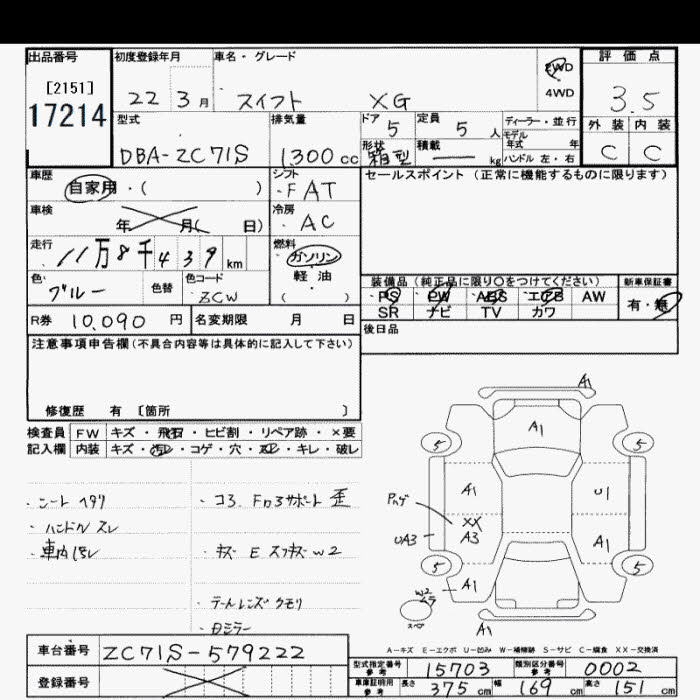 出品番号 初度登録年月 車名・グレード 2WD 4WD 評価点
[2151] 17214
22 3月 スイフト XG 3.5
型式 排気量 ドア 5 定員 5人 ディーラー・並行 外装 内装
モデル年式 年
DBA-ZC71S 1300cc 形状 箱型 積載 ― kg ハンドル 左・右 C C
車歴 自家用・( ) シフト FAT セールスポイント (正常に機能するものに限ります)
車検 年 月( 日) 冷房 AC
走行 11万8千439km 燃料 ガソリン 軽油 ( )
色 ブルー 色替 色コード ZCW
装備品 (純正品に限り〇をつけてください) 新車保証書
PS PW ABS エアB AW 有・無
SR ナビ TV カワ
R券 10,090円 名変期限 月 日
後日品
注意事項申告欄(不具合内容等は具体的に記入して下さい)
修復歴 有 [箇所 ]
検査員 FW キズ・飛石・ヒビ割・リペア跡・×要
記入欄 内装 キズ・汚レ・コゲ・穴・・キレ・破レ
・シート ヘタリ
・ハンドル スレ
・車内汚レ
・コ3. Fロ3サポート 歪
・キズ E スリキズ W2
・テールレンズ クモリ
A1
A1
5 5
A1 U1
XX
A3
UA3
A1
5 5
A1
W2
ムラ
スペア
A1
A-キズ E-エクボ U-凹み W-補修跡 S-サビ C-腐食 XX-交換済
車台番号 ZC71S-579222
登録番号
型式指定番号 参考 15703 類別区分番号 参考 0002
車庫証明用 参考 長さ 375cm 幅 169cm 高さ 151cm